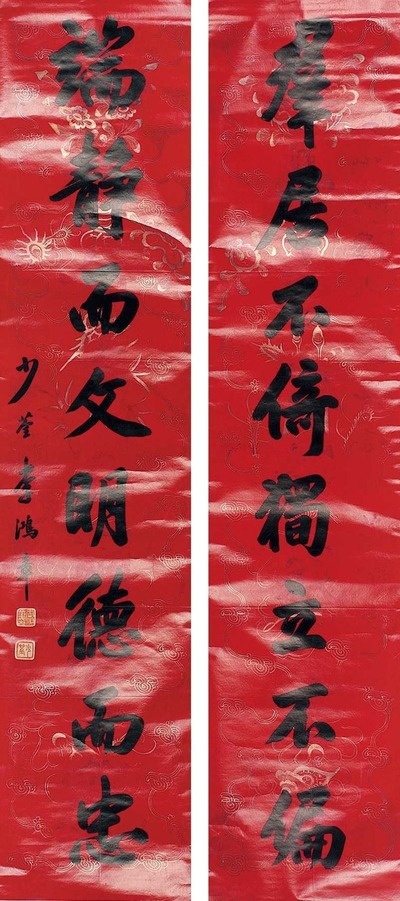 羣居不倚獨立不偏
端靜而文明德而忠
少荃李鴻章